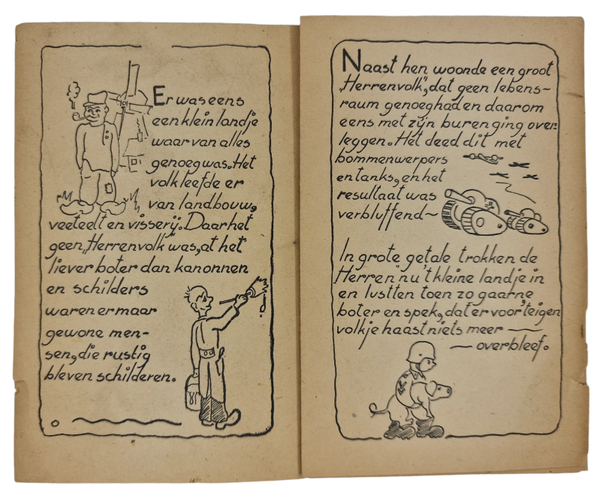 Er was eens
een klein landje
waar van alles
genoeg was. Het
volk leefde er
van landbouw,
veeteelt en visserij. Daar het
geen „Herrenvolk" was, at het
liever boter dan kanonnen
en schilders
waren er maar
gewone men-
sen, die rustig
bleven schilderen.
Naast hen woonde een groot
„Herrenvolk", dat geen lebens-
raum genoeg had en daarom
eens met zijn buren ging over
leggen. Het deed dit met
bommenwerpers
en tanks, en het
resultaat was
verbluffend~
In grote getale trokken de
„Herren" nu 't kleine landje in
en lustten toen zo gaarne
boter en spek, dat er voor 't eigen
volkje haast niets meer —
— overbleef.